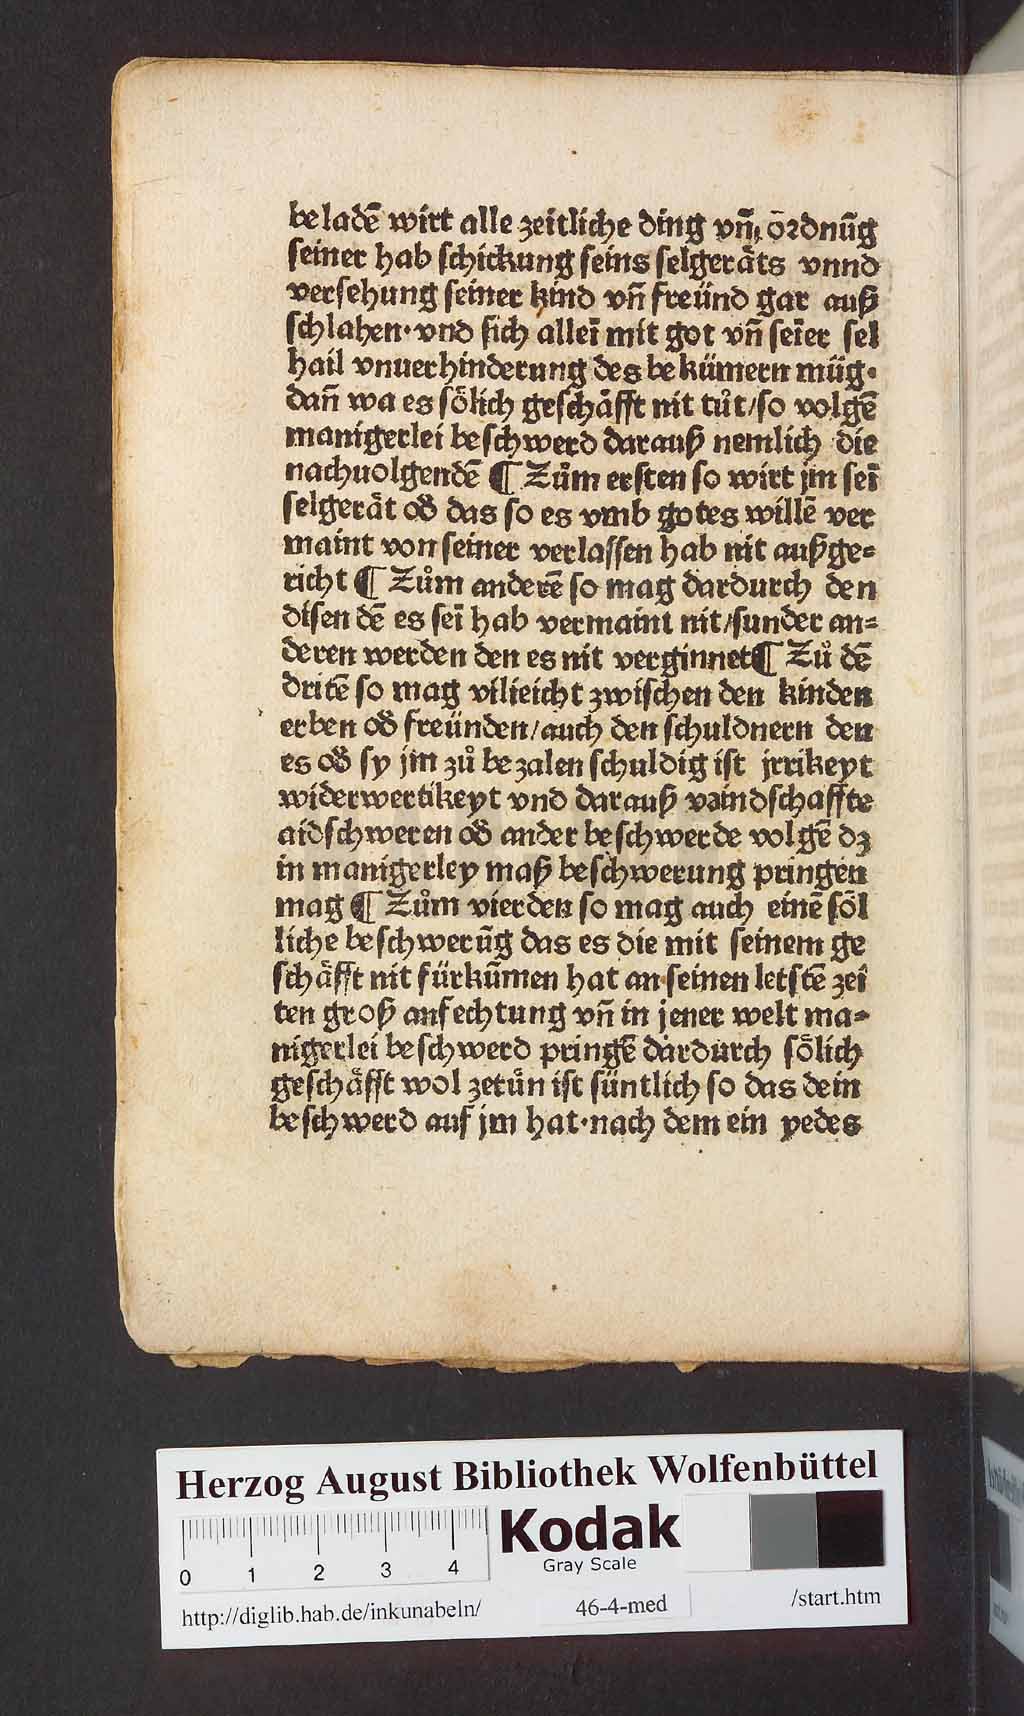 beladē wirt alle zeitliche ding vn̄ ōꝛdnūg
seiner hab schickung seins selgeräts vnnd
versehung seiner kind vn̄ freünd gar auß
schlahen·vnd sich alleī mit got vn̄ seīer sel
hail vnuerhinderung des bekümern müg·
dan̄ wa es sölich geschäfft nit tůt/so volgē
manigerlei beschwerd darauß nemlich die
nachuolgendē ¶ Zům ersten so wirt jm seī
selgerät oď das so es vmb gotes willē ver
maint von seiner verlassen hab nit außge=
richt ¶ Zům anderē so mag dardurch den
disen dē es seī hab vermaint nit/sunder an=
deren werden den es nit verginnet¶ Zů dē
dritē so mag vilieicht zwischen den kinden
erben oď freünden/auch den schuldnern den
es oď sy jm zů bezalen schuldig ist jrrikeyt
widerwertikeyt vnd darauß vaindschaffte
aidschweren oď ander beschwerde volgē dz
in manigerley maß beschwerung pringen
mag ¶ Zům vierden so mag auch einē söl
liche beschwerūg das es die mit seinem ge
schäfft nit fürkūmen hat an seinen letstē zei
ten groß anfechtung vn̄ in jener welt ma=
nigerlei beschwerd pringē dardurch sölich
geschäfft wol zetůn ist süntlich so das dein
beschwerd auf jm hat·nach dem ein yedes
Herzog August Bibliothek Wolfenbüttel
0 1 2 3 4
Kodak
Gray Scale
http://diglib.hab.de/inkunabeln/ 46-4-med /start.htm